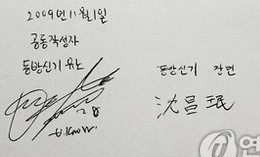 2009년 11월 1일
공동작성자
동방신기 유노
U-Know
동방신기 창민
沈昌珉
연